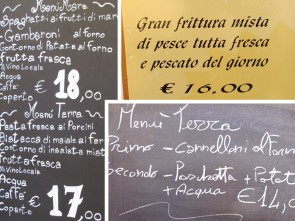 Menù Mare
Spaghetti ai frutti di mare
Gamberoni al forno
Contorno di Patate al forno
frutta fresca
½ Vino Locale
Acqua
Caffè
Coperto
€ 18,00
Menù Terra
Pasta fresca ai Porcini
Bistecca di maiale ai fer
Contorno di insalata mist
frutta fresca
½ Vino Locale
Acqua
Caffè
Coperto
€ 17,00
Gran frittura mista
di pesce tutta fresca
e pescato del giorno
€ 16,00
Menù Terra
Primo - Cannelloni al forn
Secondo - Porchetta + Patat
+ Acqua €14,0